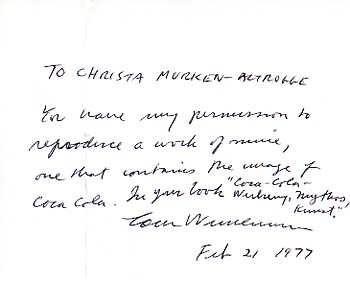 TO CHRISTA MURKEN-ALTROGGE
You have my permission to
reproduce a work of mine,
one that contains the image of
Coca Cola. In your book "Coca-Cola-
Werbung, Mythos,
Kunst."
Tom Wesselmann
Feb 21 1977